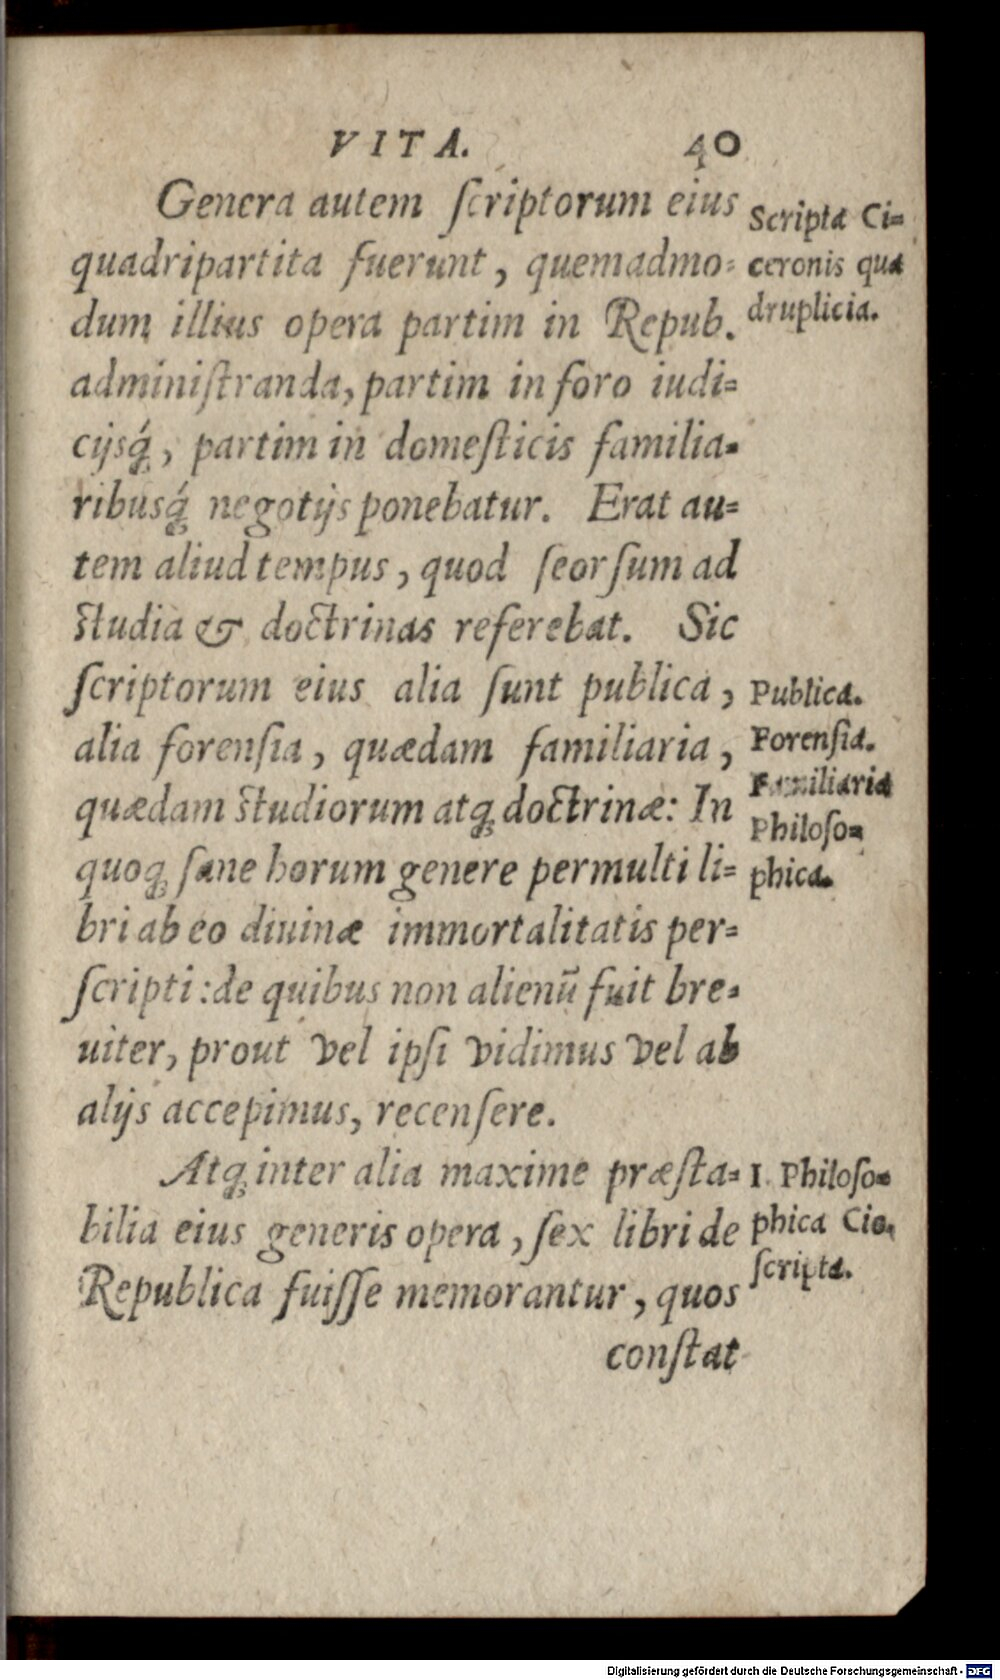 VITA. 40
Genera autem ſcriptorum eius
quadripartita fuerunt, quemadmo=
dum illius opera partim in Repub.
adminiſtranda, partim in foro iudi=
cijsq́;, partim in domeſticis familia=
ribusq́; negotijs ponebatur. Erat au=
tem aliud tempus, quod ſeorſum ad
ſtudia & doctrinas referebat. Sic
ſcriptorum eius alia ſunt publica,
alia forenſia, quædam familiaria,
quædam ſtudiorum atq; doctrinæ: In
quoq; ſane horum genere permulti li=
bri ab eo diuinæ immortalitatis per=
ſcripti: de quibus non alienū fuit bre=
uiter, prout vel ipſi vidimus vel ab
alijs accepimus, recenſere.
Atq; inter alia maxime præſta=
bilia eius generis opera, ſex libri de
Republica fuiſſe memorantur, quos
conſtat
Scripta Ci=
ceronis qua
druplicia.
Publica.
Forenſia.
Familiaria
Philoſo=
phica.
I. Philoſo=
phica Cic.
ſcripta.
Digitalisierung gefördert durch die Deutsche Forschungsgemeinschaft - DFG